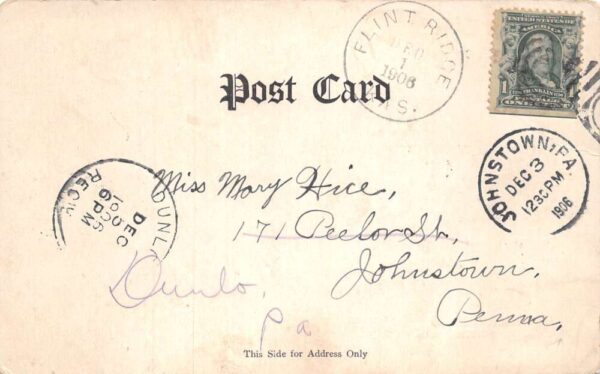 FLINT RIDGE
DEC
1
1906
KAS.
UNITED STATES OF
AMERICA
1
FRANKLIN
POSTAGE
ONE CENT
Post Card
JOHNSTOWN, PA.
DEC 3
1230PM
1906
DUNLO
DEC
6 PM
1906
REC'D
Miss Mary Hice,
171
St.,
Johnstown,
Penna,
Dunlo,
Pa
This Side for Address Only